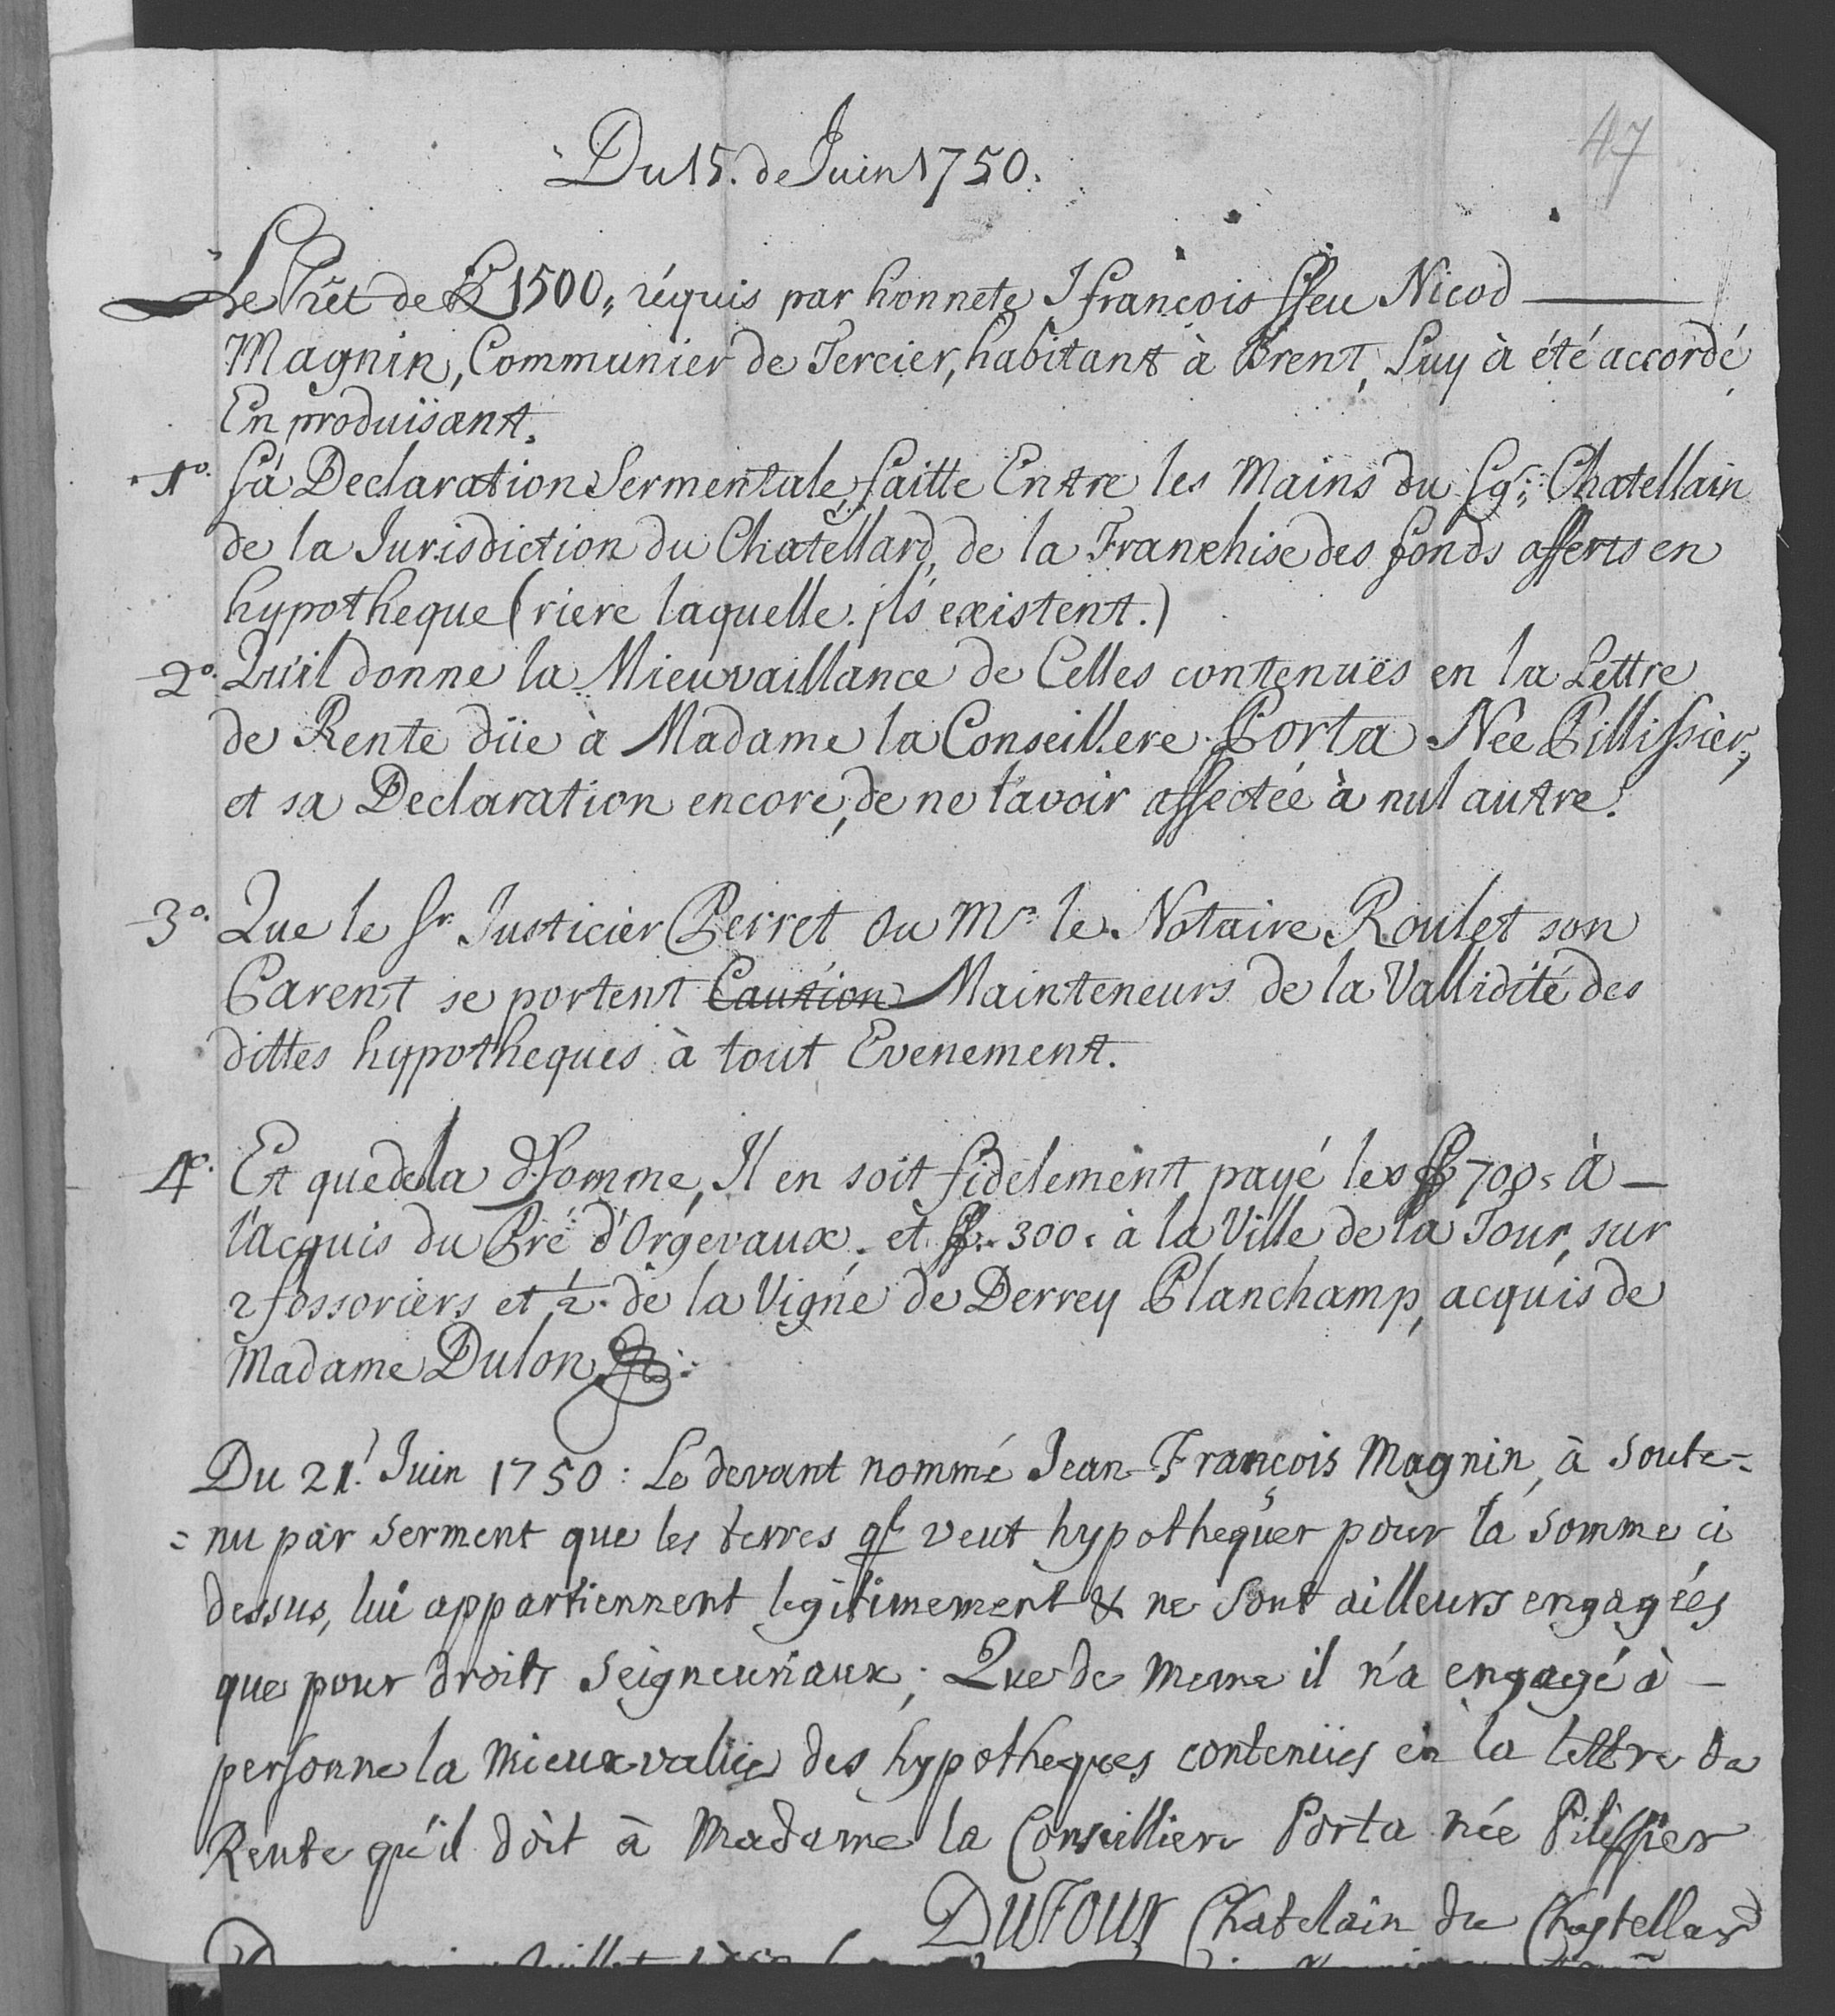 47
Du 15. de Juin 1750.
Le Prêt de 1500,, réquis par honnete J françois ffeu Nicod
Magnin, Communier de Tercier, habitant à Brent, Luy à été accordé
En produisant.
1º. Sa Declaration Sermentale, faitte Entre les Mains du Sgr. Chatellain
de la Jurisdiction du Chatellard, de la Franchise des fonds offerts en
hypotheque (riere laquelle jls existent.)
2º. Qu'il donne la Mieuvaillance de Celles contenuës en la Lettre
de Rente düe à Madame la Conseillere Porta Née Pillissier,
et sa Declaration encore, de ne l'avoir affectée à nul autre.
3º. Que le Sr. Justicier Perret ou Mr. le Notaire Roulet son
Parent se portent Caution Mainteneurs de la Vallidité des
dittes hypotheques à tout Evenement.
4º. Et que de la d. somme, Il en soit fidélement payé les ff 700. À
l'Acquis du Pré d'Orgevaux. et ff. 300. à la Ville de la Tour, sur
2 fossoriers et ½. de la Vigne de Derrey Planchamp, acquis de
Madame Dulon
Du 21. Juin 1750 : Le devant nommé Jean-François Magnin, à soute=
=nu par serment que les terres ql veut hypothequer pour la somme ci
dessus, lui appartiennent legitimement & ne sont ailleurs engagées
que pour droits Seigneuriaux ; Que de meme il n'a engagé à
personne la mieuxvalüe des hypotheques contenües en la lettre de
Rente qu'il doit à Madame la Conseilliere Porta née Pilissier
DuFour Chatelain du Chastellard